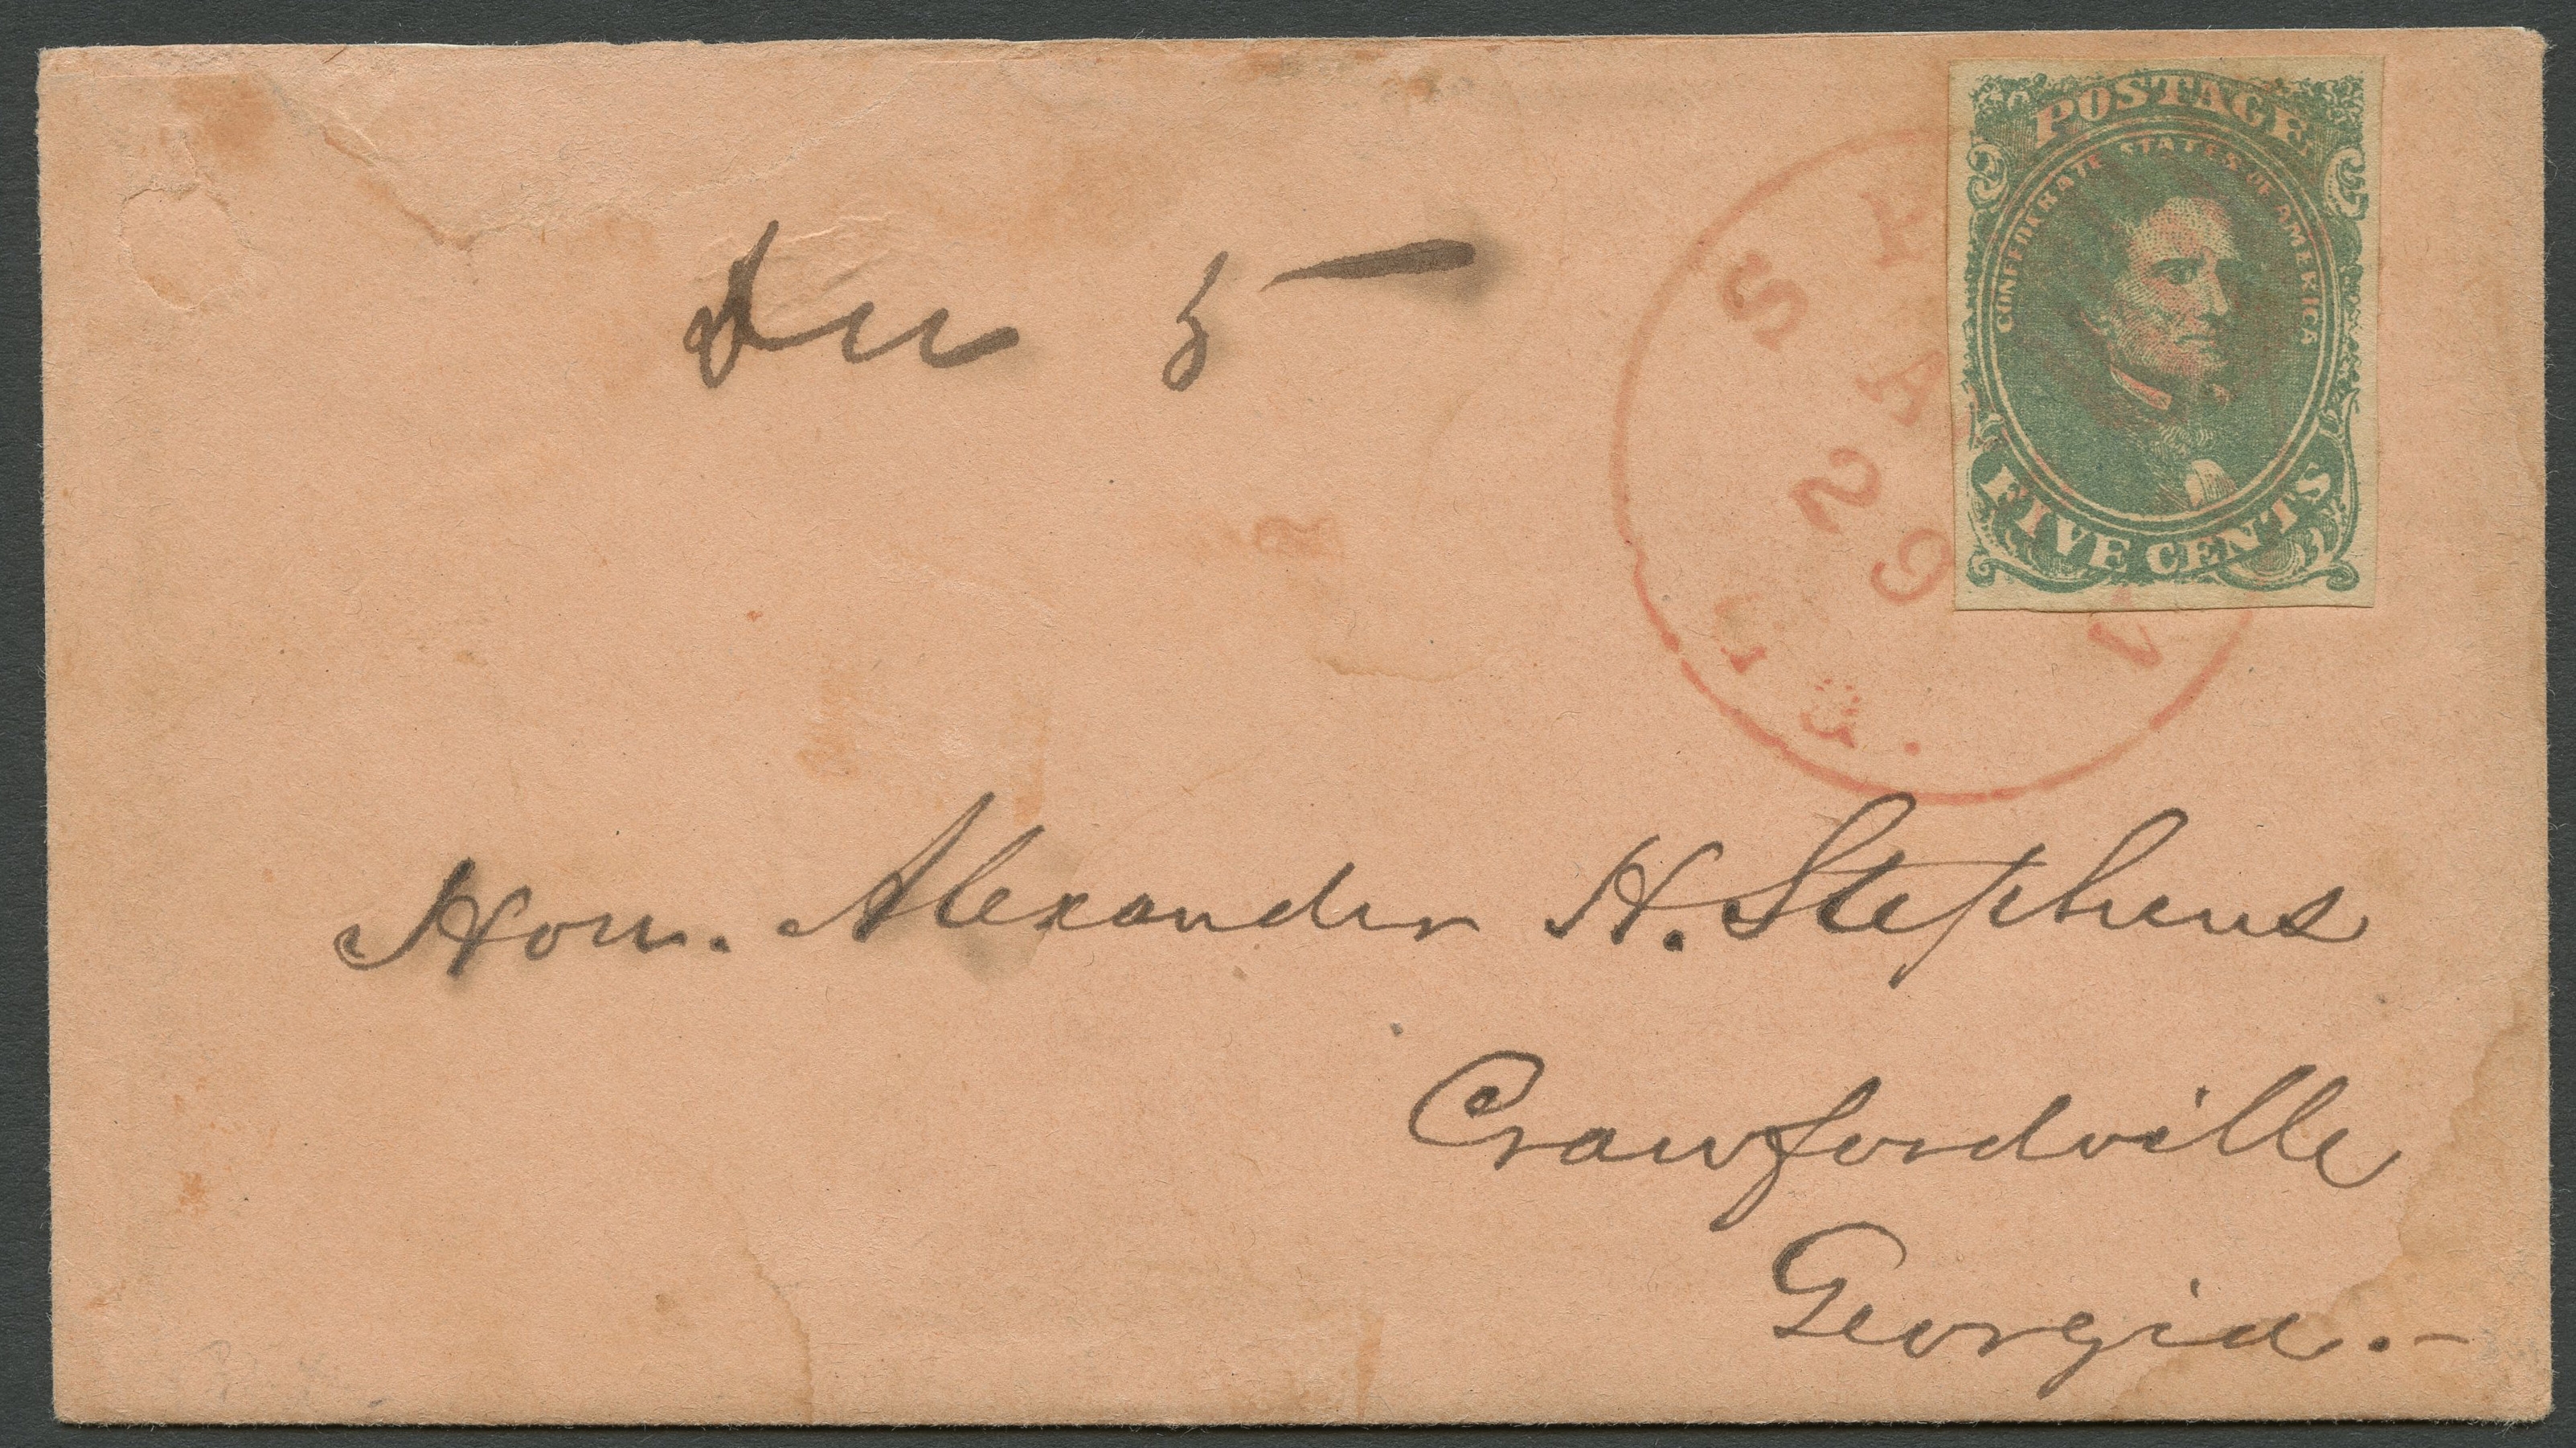 POSTAGE
CONFEDERATE STATES OF AMERICA
FIVE CENTS
Due 5
29
Hon. Alexander H. Stephens
Crawfordville
Georgia.-